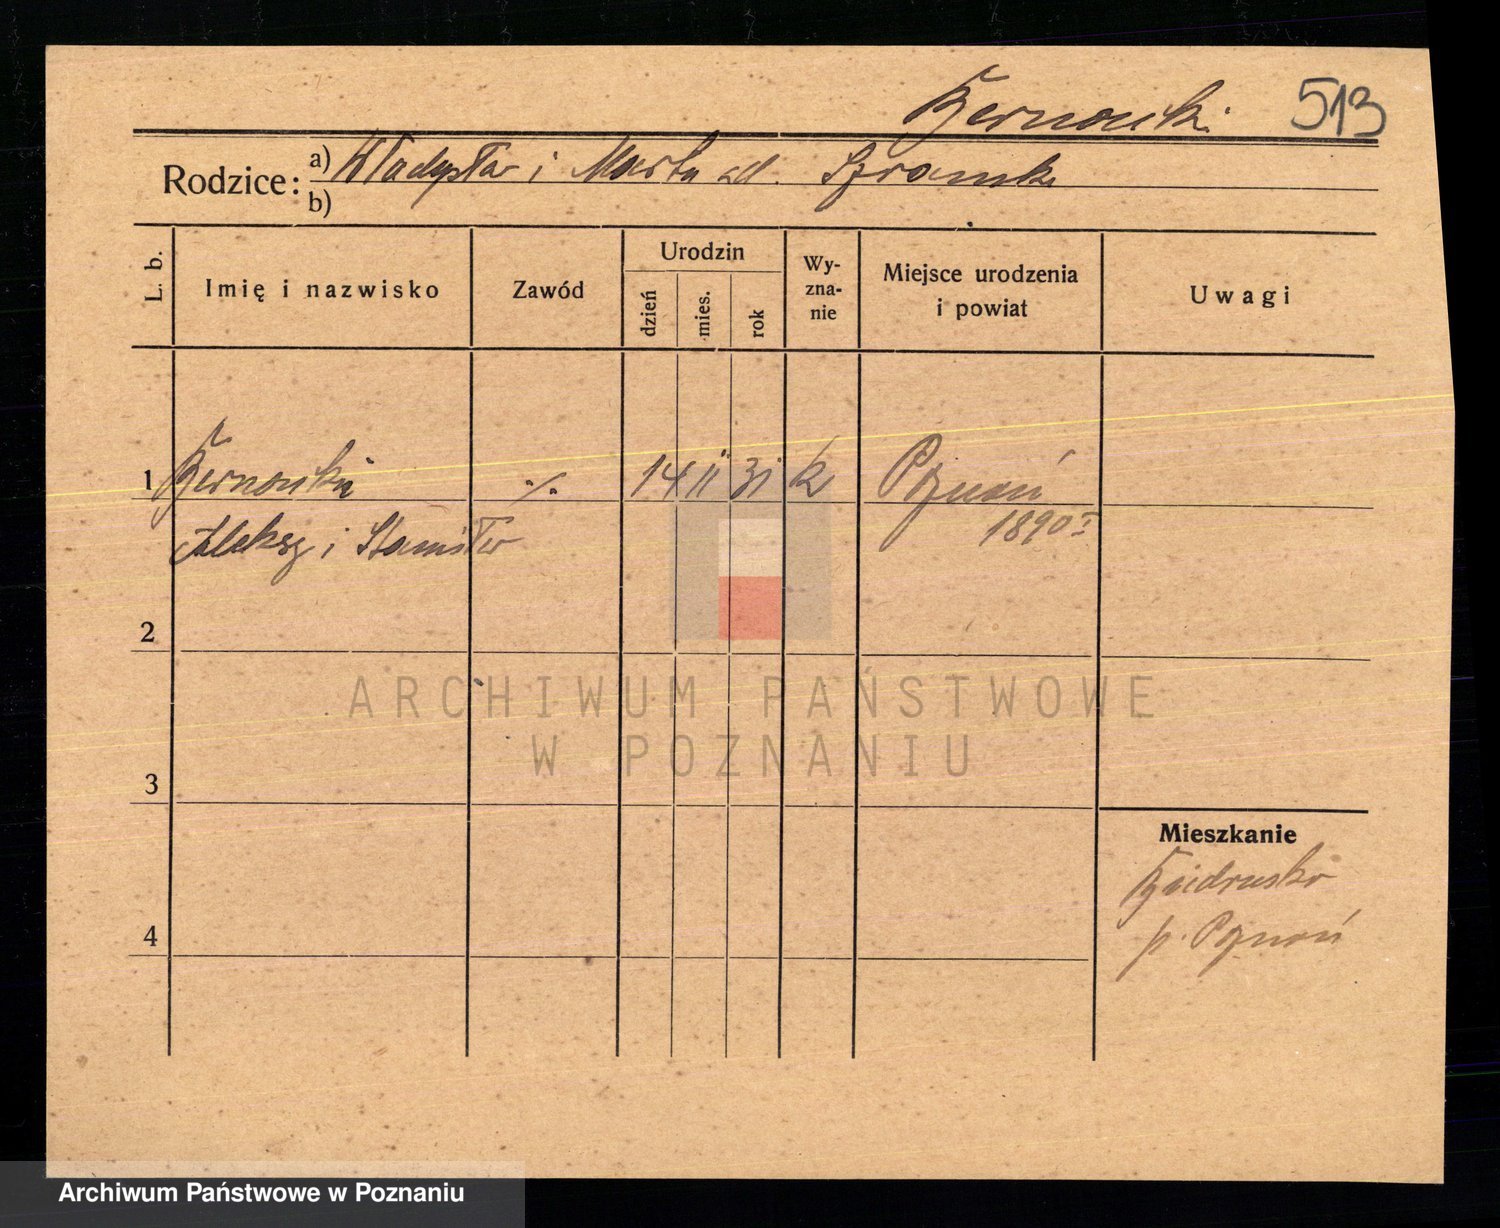 513
Rodzice: a) Władysław i Marta zd.
b)
L. b.
Imię i nazwisko
Zawód
Urodzin
dzień
mies.
rok
Wy-
zna-
nie
Miejsce urodzenia
i powiat
Uwagi
1
·/.
14 II 31 k
Poznań
1890
i Stanisław
2
ARCHIWUM PAŃSTWOWE
W POZNANIU
3
Mieszkanie
Biedrusko
p. Poznań
4
Archiwum Państwowe w Poznaniu